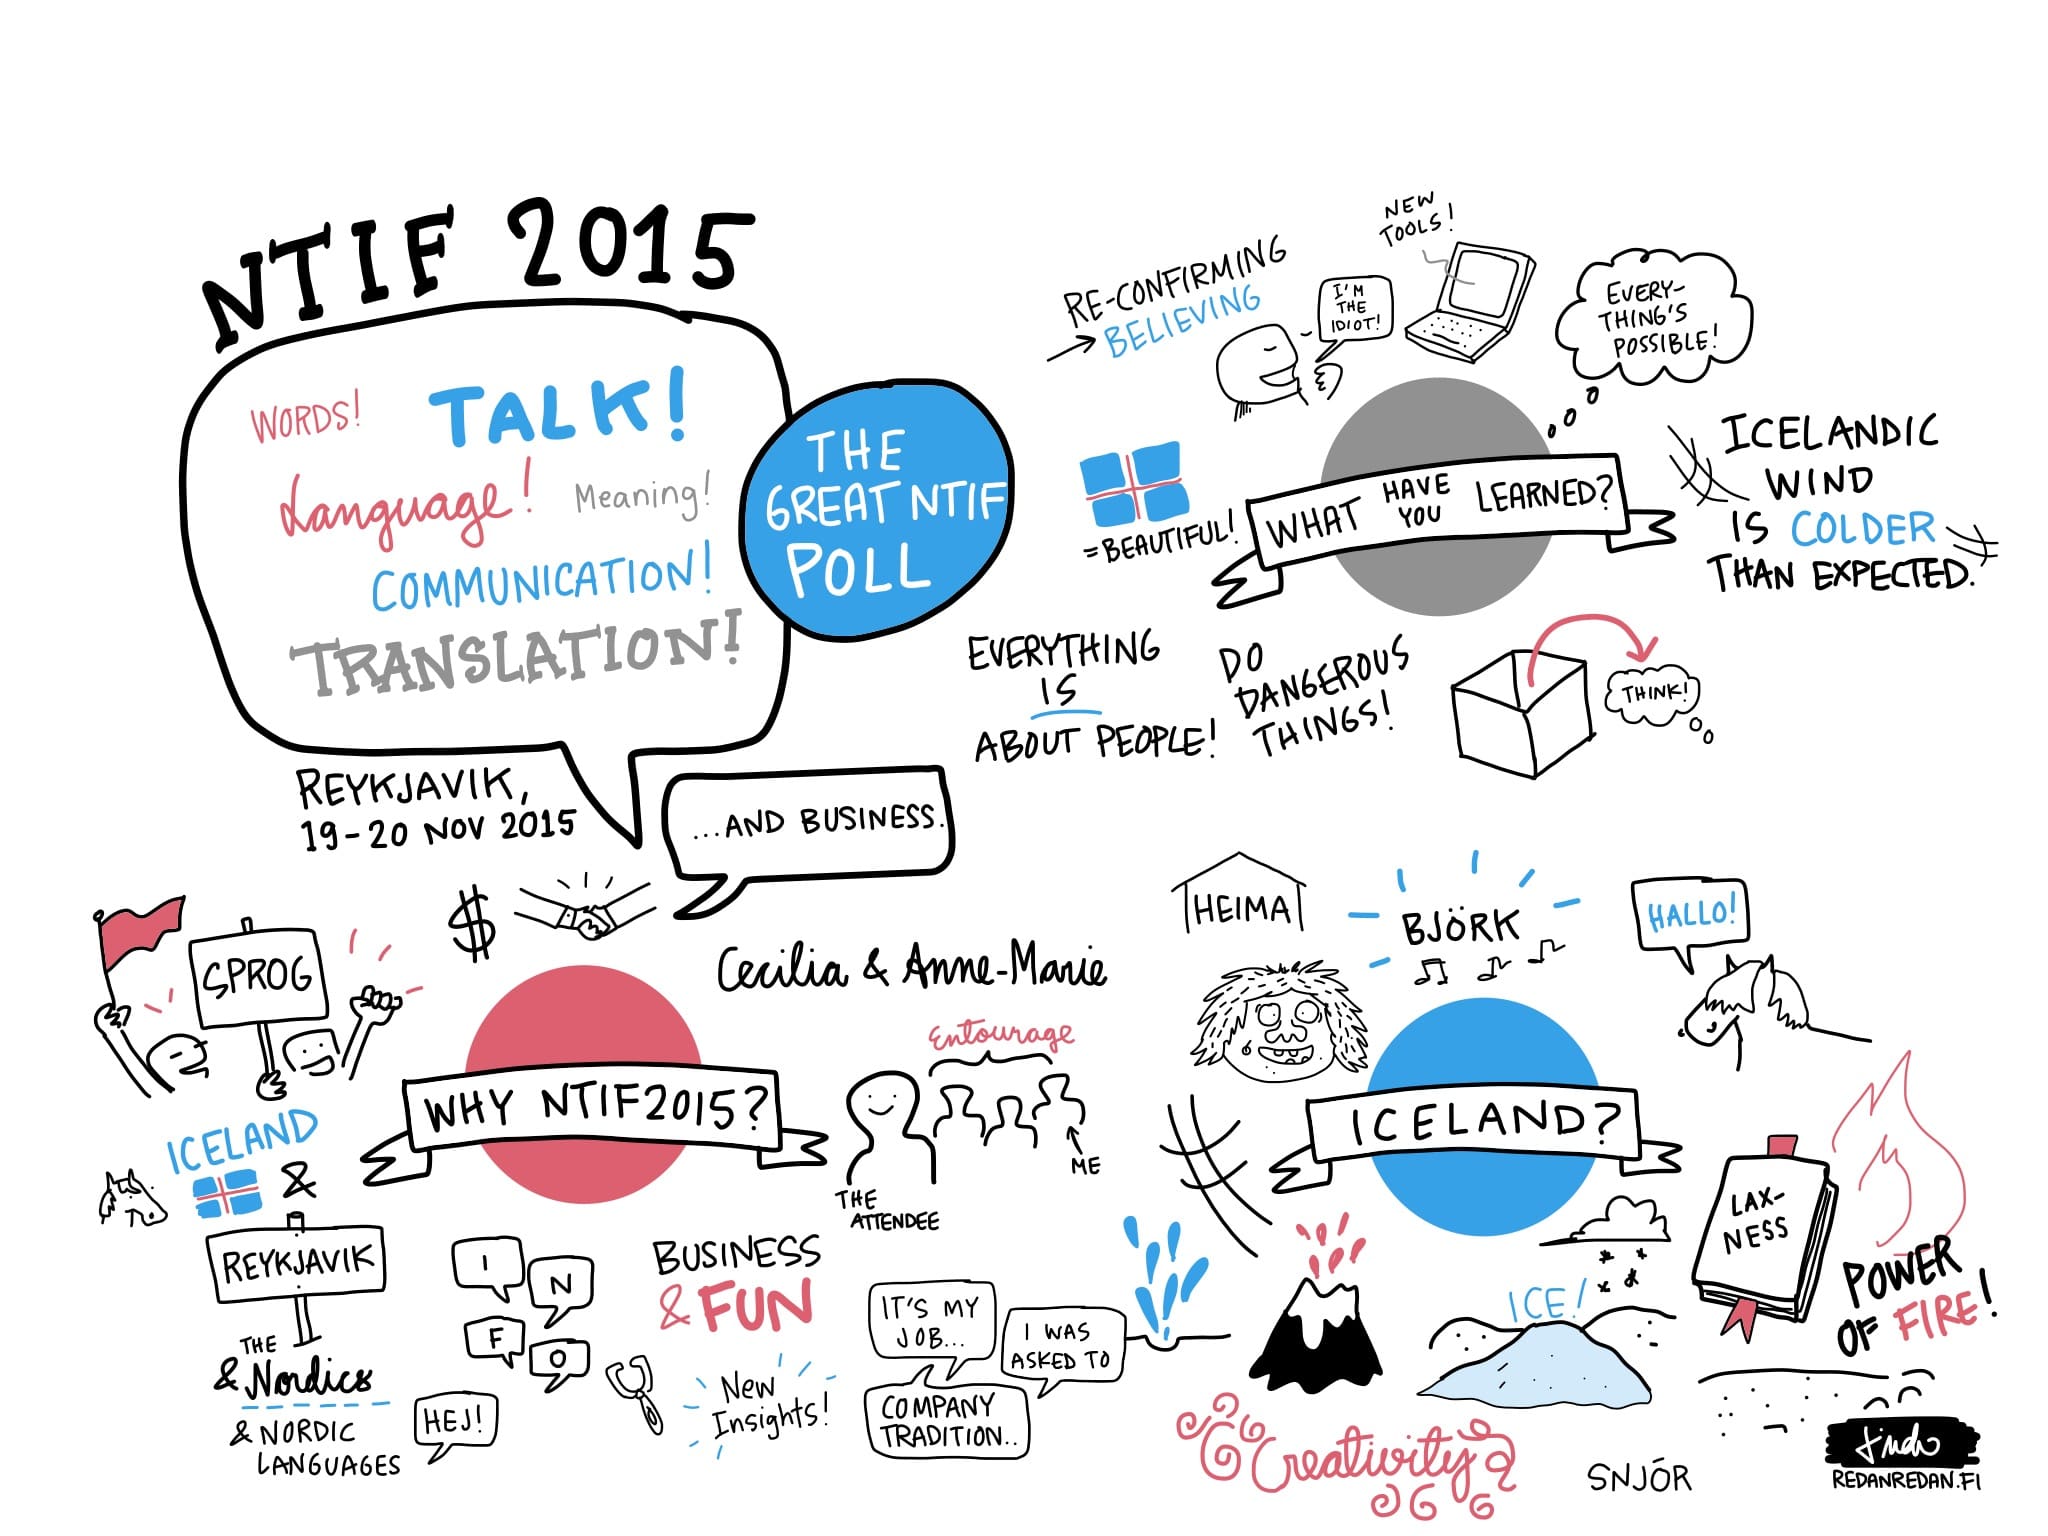 NTIF 2015
WORDS!
TALK!
Language!
Meaning!
COMMUNICATION!
TRANSLATION!
THE
GREAT NTIF
POLL
REYKJAVIK,
19-20 NOV 2015
...AND BUSINESS.
RE-CONFIRMING
BELIEVING
I'M
THE
IDIOT!
NEW
TOOLS!
EVERY-
THING'S
POSSIBLE!
= BEAUTIFUL!
WHAT HAVE YOU LEARNED?
ICELANDIC
WIND
IS COLDER
THAN EXPECTED.
EVERYTHING
IS
ABOUT PEOPLE!
DO
DANGEROUS
THINGS!
THINK!
SPROG
$
Cecilia & Anne-Marie
WHY NTIF2015?
Entourage
ME
THE
ATTENDEE
ICELAND
&
REYKJAVIK
THE
& Nordics
& NORDIC
LANGUAGES
I
N
F
O
HEJ!
BUSINESS
& FUN
New
Insights!
IT'S MY
JOB...
I WAS
ASKED TO
COMPANY
TRADITION..
HEIMA
BJÖRK
HALLO!
ICELAND?
LAX-
NESS
POWER
OF FIRE!
ICE!
Creativity
SNJÓR
REDANREDAN.FI